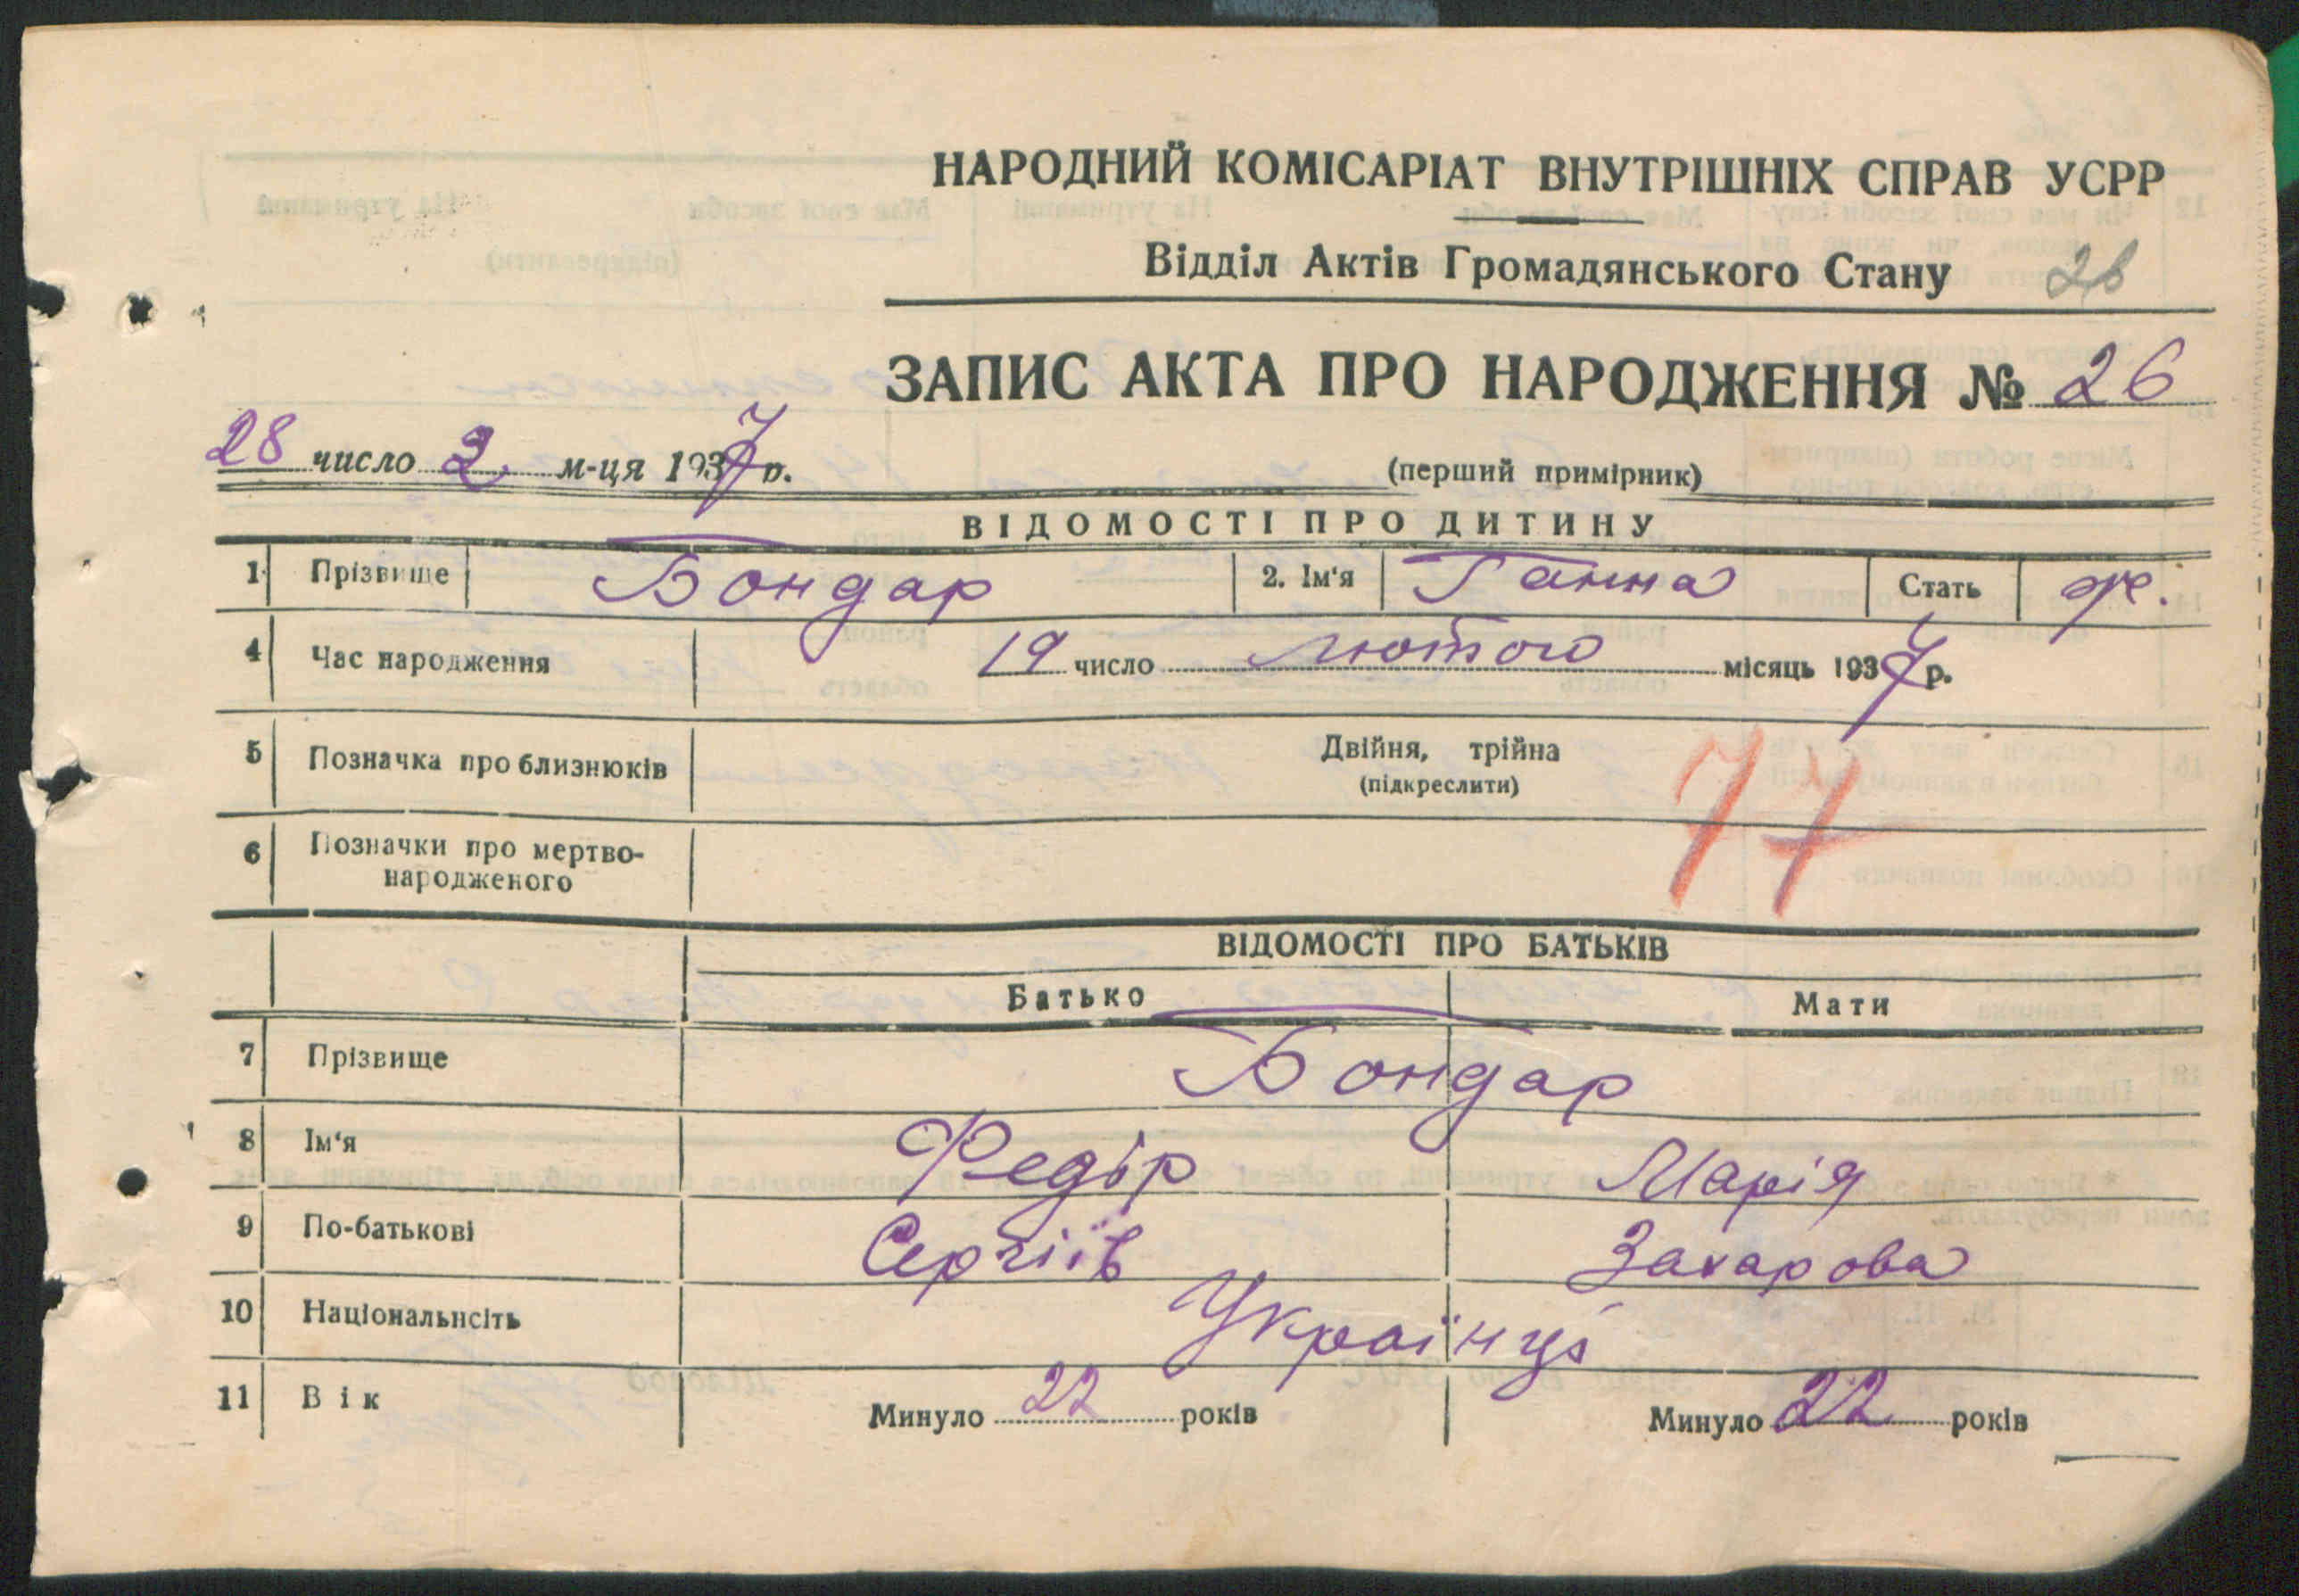 НАРОДНИЙ КОМІСАРІАТ ВНУТРІШНІХ СПРАВ УСРР
Відділ Актів Громадянського Стану 26
ЗАПИС АКТА ПРО НАРОДЖЕННЯ № 26
28 число 2. м-ця 1937 р.
(перший примірник)
ВІДОМОСТІ ПРО ДИТИНУ
1 Прізвище Бондар 2. Ім'я Ганна Стать ж.
4 Час народження 19 число лютого місяць 1937 р.
5 Позначка про близнюків Двійня, трійна
(підкреслити)
77
6 Позначки про мертво-
народженого
ВІДОМОСТІ ПРО БАТЬКІВ
Батько Мати
7 Прізвище Бондар
8 Ім'я Федір Марія
9 По-батькові Сергіїв Захарова
10 Національнсіть Українці
11 Вік Минуло 22 років Минуло 22 років